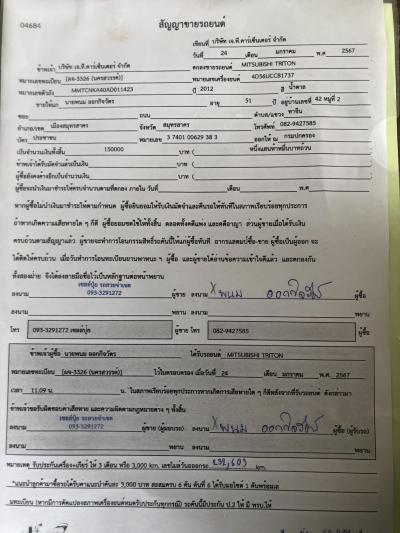 04684
สัญญาขายรถยนต์
เขียนที่ บริษัท เจ.ที.คาร์เซ็นเตอร์ จำกัด
วันที่ 24 เดือน มกราคม พ.ศ. 2567
ข้าพเจ้า บริษัท เจ.ที.คาร์เซ็นเตอร์ จำกัด ตกลงขายรถยนต์ MITSUBISHI TRITON
หมายเลขทะเบียน [ผจ-3326 (นครสวรรค์)] หมายเลขเครื่องยนต์ 4D56UCC81737
หมายเลขตัวถัง MMTCNKA40AD011423 ปี 2012 สี น้ำตาล
ขายให้แก่ นายพนม ออกกิจวัตร อายุ 51 ปี อยู่บ้านเลขที่ 42 หมู่ที่ 2
ซอย ถนน ตำบล/แขวง ท่าจีน
อำเภอ/เขต เมืองสมุทรสาคร จังหวัด สมุทรสาคร โทรศัพท์ 082-9427585
บัตร ประชาชน หมายเลข 3 7401 00629 38 3 ออกให้ ณ กรมปกครอง
เป็นจำนวนเงินทั้งสิ้น 150000 บาท ( หนึ่งแสนห้าหมื่นบาทถ้วน
ข้าพเจ้าได้รับมัดจำแล้วเป็นเงิน บาท (
ผู้ซื้อยังคงค้างอีกเป็นจำนวนเงิน บาท (
ผู้ซื้อจะนำเงินมาชำระให้ครบจำนวนตามที่ตกลง ภายใน วันที่ เดือน พ.ศ.
หากผู้ซื้อไม่นำเงินมาชำระให้ตามกำหนด ผู้ซื้อยินยอมให้ริบเงินมัดจำและคืนรถให้ทันทีในสภาพเรียบร้อยทุกประการ
ถ้าหากเกิดความเสียหายใด ๆ ก็ดี ผู้ซื้อยอมชดใช้ให้ทั้งสิ้น ตลอดทั้งคดีแพ่ง และคดีอาญา ส่วนผู้ขายเมื่อได้รับเงิน
ครบถ้วนตามสัญญาแล้ว ผู้ขายจะทำการโอนกรรมสิทธิ์รถคันนี้ให้แก่ผู้ซื้อทันที อากรแสตมป์ซื้อ-ขาย ผู้ซื้อเป็นผู้ออก จะ
ได้ติดให้ครบถ้วน เมื่อวันทำการโอนทะเบียนยานพาหนะ ฯ ผู้ซื้อ และผู้ขายได้อ่านข้อความเข้าใจดีแล้ว และตกลงกัน
ทั้งสองฝ่าย จึงได้ลงลายมือชื่อไว้เป็นหลักฐานต่อหน้าพยาน
เซลล์ปุ้ย รถสวยขำเขต
ลงนาม 093-3291272 ผู้ขาย ลงนาม X พนม ออกกิจวัตร ผู้ซื้อ
ลงนาม พยาน ลงนาม พยาน
โทร 093-3291272 เซลล์ปุ้ย ผู้ขาย โทร 082-9427585 ผู้ซื้อ
ข้าพเจ้าผู้ซื้อ นายพนม ออกกิจวัตร ได้รับรถยนต์ MITSUBISHI TRITON
หมายเลขทะเบียน [ผจ-3326 (นครสวรรค์)] ไว้ในครอบครอง เมื่อวันที่ 24 เดือน มกราคม พ.ศ. 2567
เวลา 11.09 น. น. ในสภาพเรียบร้อยทุกประการหากเกิดการเสียหายใด ๆ ก็ดีหลังจากที่รับรถยนต์ ดังกล่าวมา
ข้าพเจ้าขอรับผิดชอบค่าเสียหาย และความผิดตามกฎหมายต่าง ๆ ทั้งสิ้น
ลงนาม 093-3291272 ผู้ขาย (ผู้มอบรถ) ลงนาม X พนม ออกกิจวัตร ผู้ซื้อ (ผู้รับรถ)
ลงนาม พยาน ลงนาม พยาน
หมายเหตุ รับประกันเครื่อง+เกียร์ ให้ 3 เดือน หรือ 3,000 km. เลขไมล์วันออกรถ 232,603 km.
*แนะนำลูกค้ามาซื้อรถได้รับค่าแนะนำคันละ 3,000 บาท สะสมครบ 6 คัน คันที่ 6 ได้รับมอไซค์ 1 คันพร้อมเล่
มทะเบียน (หากมีการดัดแปลงสภาพเครื่องยนต์หมดรับประกันทุกกรณี) รถคันนี้มีประกัน ป.2 ให้ มี พรบ.ให้